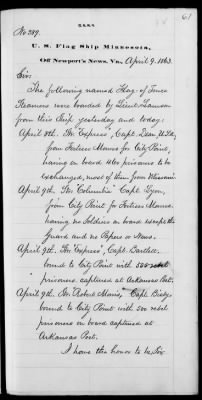 61
No. 289.
U. S. Flag Ship Minnesota,
Off Newport's News, Va., April 9. 1863.
Sir:
The following named Flag-of-Truce
Steamers were boarded by Lieut. Lamson
from this Ship yesterday and today:
April 8th. Str. "Express", Capt.
from Fortress Monroe for City Point,
having on board 460 prisoners to be
exchanged, most of them from Missouri.
April 9th. Str. Columbia" Capt. Lyon,
from City Point for Fortress Monroe
having no Soldiers on board except the
Guard and no Papers or News.
April 9th. Str. Express", Capt. Bartlett,
bound to City Point with 500 rebel
prisoners captured at Arkansas Post.
April 9th. Str. Robert Morris," Capt.
bound to City Point with 500 rebel
prisoners on board captured at
Arkansas Post.
I have the honor to be, Sir